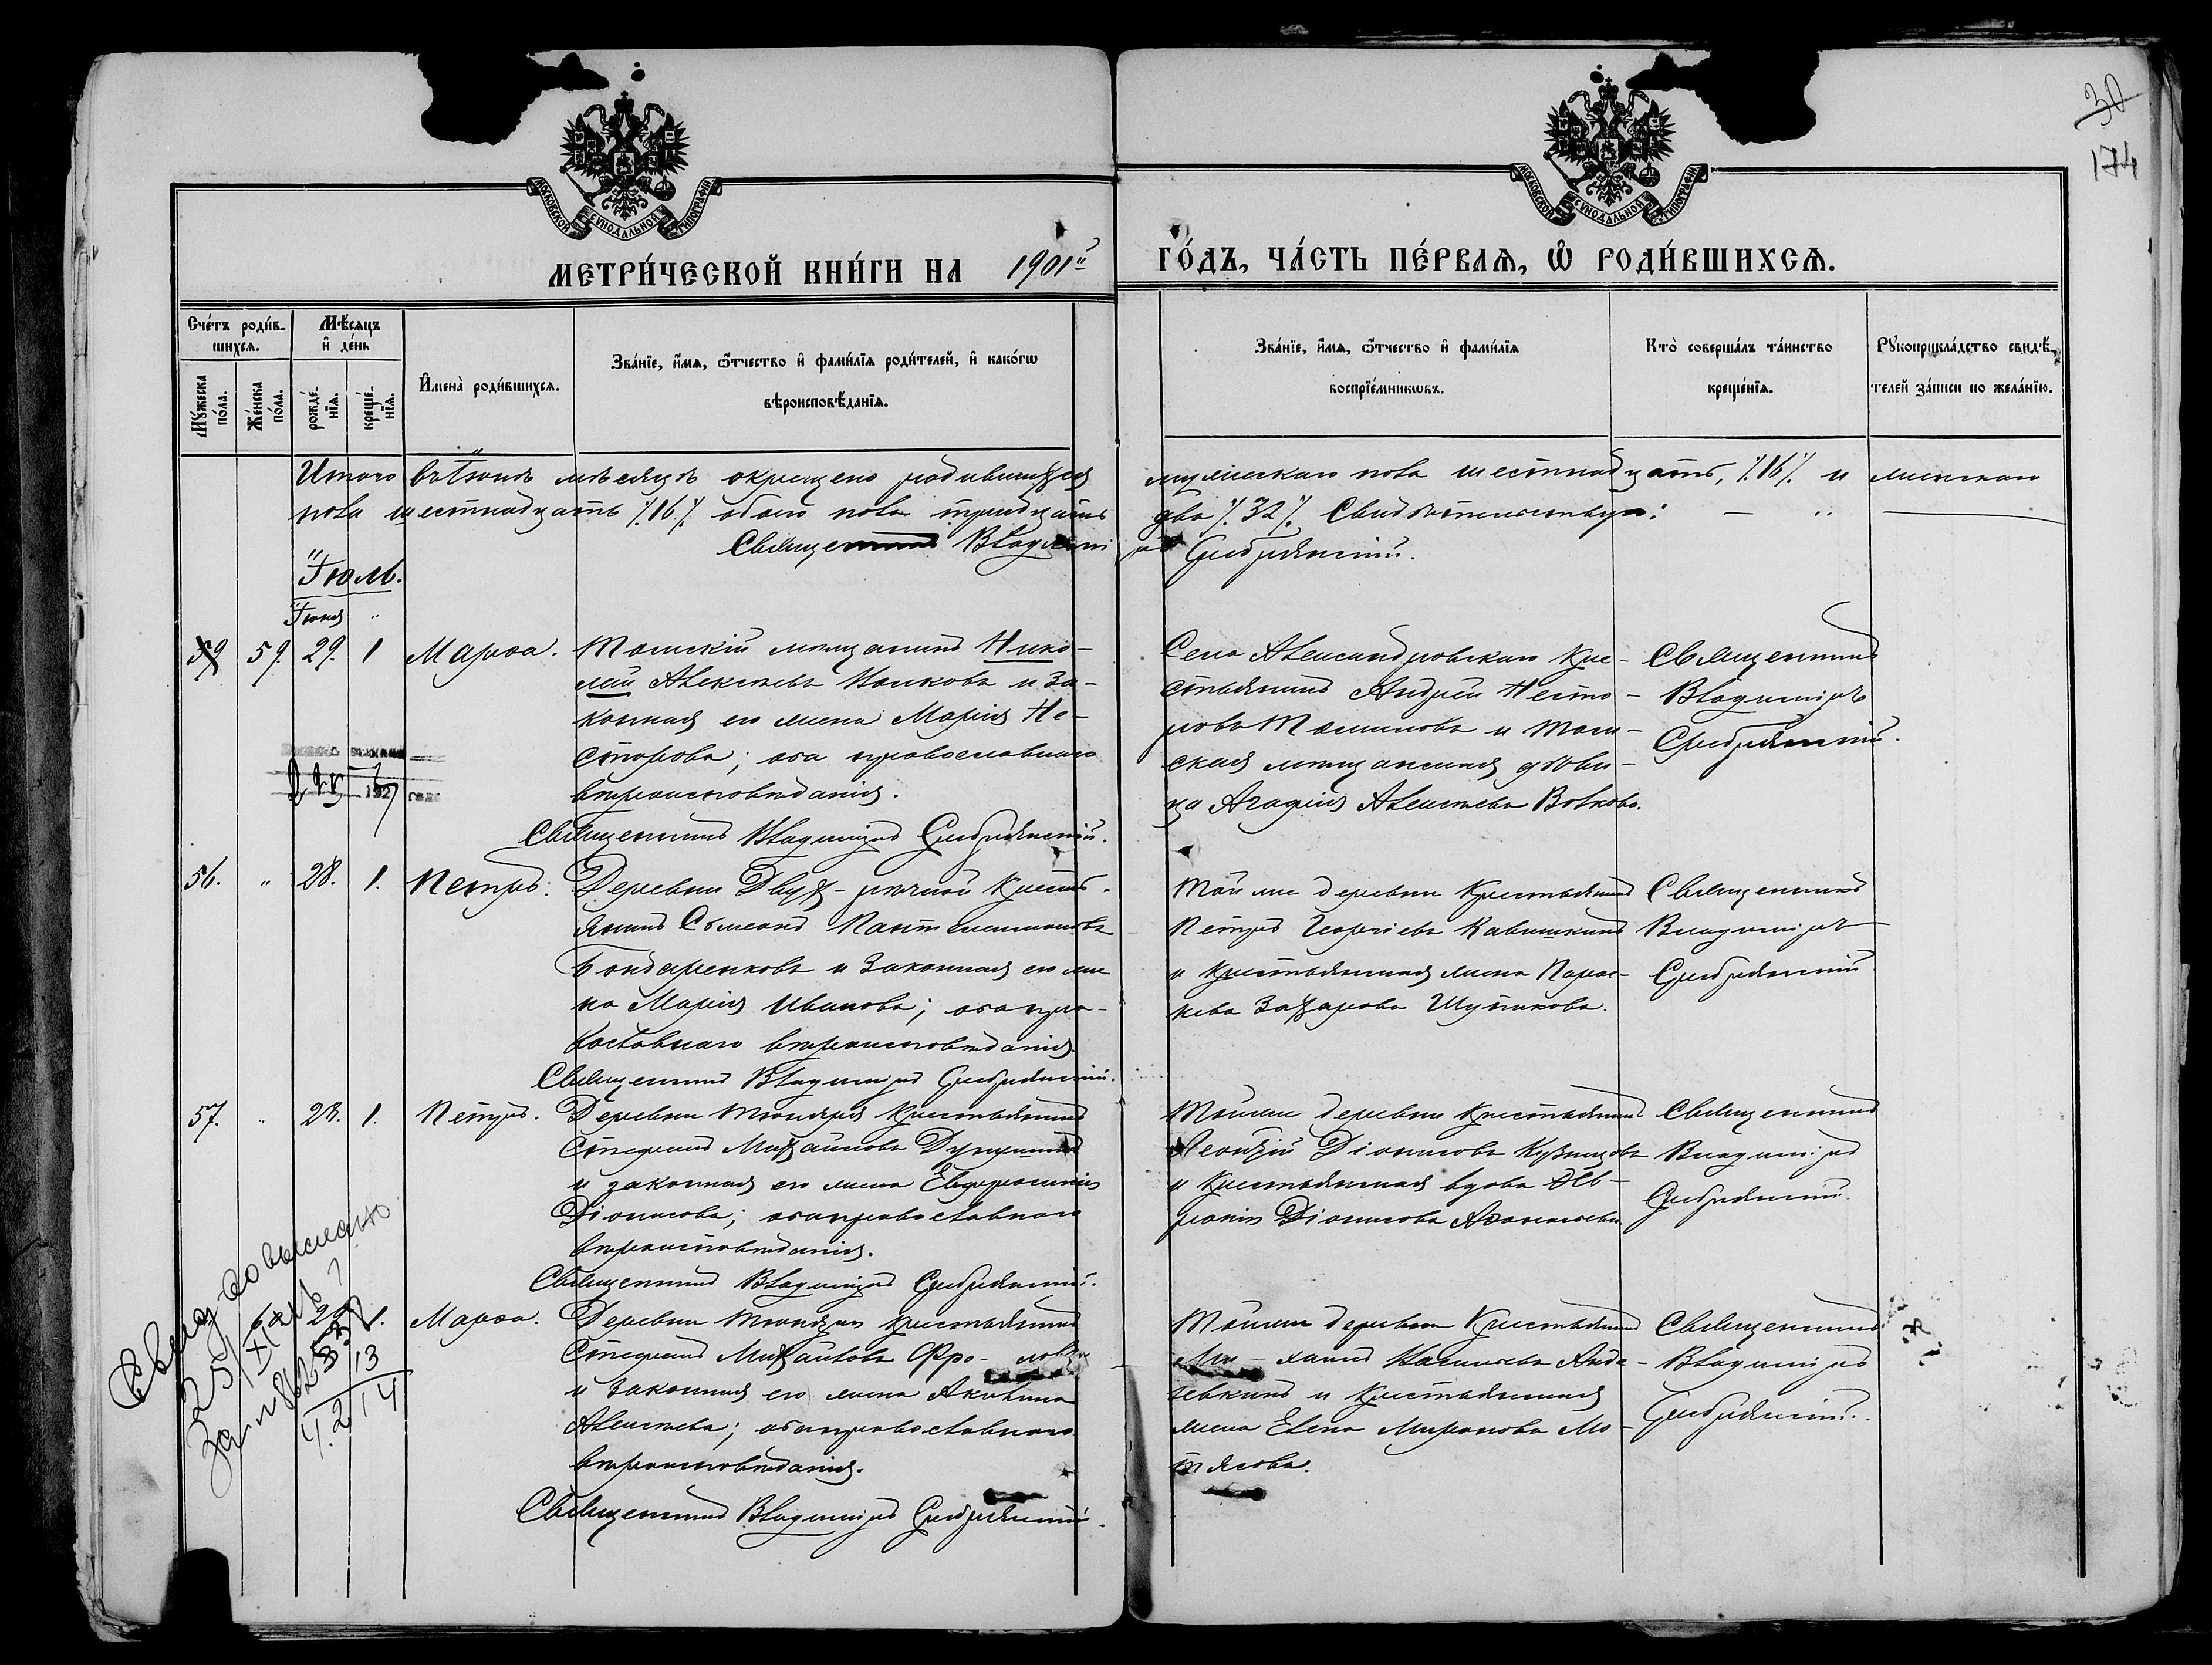 30
174
МОСКОВСКОЙ СѴНОДАЛЬНОЙ ТИПОГРАФІИ
МОСКОВСКОЙ СѴНОДАЛЬНОЙ ТИПОГРАФІИ
МЕТРИ́ЧЕСКОЙ КНИ́ГИ НА 1901й ГО́ДЪ, ЧА́СТЬ ПЕ́РВАѦ, Ѡ҆ РОДИ́ВШИХСѦ.
Сче́тъ роди́в-
шихсѧ.
Мꙋ́жеска по́ла.
Же́нска по́ла.
Мѣ́сѧцъ и҆ де́нь
рожде́-нїѧ.
креще́-нїѧ.
И҆мена̀ роди́вшихсѧ.
Зва́нїе, и҆́мѧ, ѻ҆́тчество и҆ фами́лїѧ роди́телей, и҆ како́гѡ
вѣроисповѣ́данїѧ.
Зва́нїе, и҆́мѧ, ѻ҆́тчество и҆ фами́лїѧ
воспрїе́мникѡвъ.
Кто̀ соверша́лъ та́инство
креще́нїѧ.
Рꙋкоприкла́дство свидѣ́-
телей за́писи по жела́нїю.
Итого въ Іюнѣ мѣсяцѣ окрещено родившихся мужескаго пола шестнадцать, ٪16٪ и женскаго
пола шестнадцать ٪16٪ обоего пола тридцать два ٪32٪. Свидѣтельствую:
Священникъ Владиміръ Серебрянскій.
Іюль.
Іюня
59 59. 29. 1 Марѳа.
Томскій мѣщанинъ Нико-
лай Алексѣевъ и за-
конная его жена Марія Не-
сторова; оба православнаго
вѣроисповѣданія.
Священникъ Владиміръ Серебрянскій.
Села Александровскаго кре-
стьянинъ Андрей Несто-
ровъ и Том-
ская мѣщанская дѣви-
ца Агафія Алексѣева Волкова.
Священникъ
Владиміръ
Серебрянскій.
192 года
56. " 28. 1. Петръ.
Деревни Двух-рѣчной крестья-
янинъ Сѵмеонъ Пантелеимоновъ
Бондаренковъ и законная его же
на Марія Иванова; оба пра-
вославнаго вѣроисповѣданія
Священникъ Владиміръ Серебрянскій.
Той же деревни крестьянинъ
Петръ Георгіевъ Кавишкинъ
и крестьянская жена Парас-
кева Захарова Шутикова.
Священникъ
Владиміръ
Серебрянскій
57. " 28. 1. Петръ.
Деревни крестьянинъ
Стефанъ Михаиловъ
и законная его жена Евфросинія
Діонисова; оба православнаго
вѣроисповѣданія.
Священникъ Владиміръ Серебрянскій.
Той же деревни крестьянинъ
Леонтій Діонисовъ Кузнецовъ
и крестьянская вдова Ѳев-
ронія Діонисова Аѳанасьева
Священникъ
Владиміръ
Серебрянскій.
1. Марѳа.
Деревни крестьянинъ
Стефанъ Михайловъ Фро- ловъ
и законная его жена Акилина
Алексѣева; оба православнаго
вѣроисповѣданія.
Священникъ Владиміръ Серебрянскій.
Той же деревни крестьянинъ
Ми-хаилъ
и крестьянская
жена Елена Миронова Мо-
тясова.
Священникъ
Владиміръ
Серебрянскій.